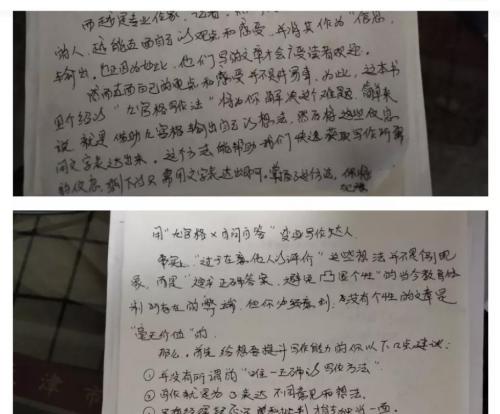 而越是专业作家、记者,
的人,越能直面自己的观点和感受,并将其作为“信息”
与输出。正因为如此,他们写的文章才会广受读者欢迎。
然而直面自己的观点和感受并不是件易事,为此,这本书
里介绍的“九宫格写作法”将为你解决这个难题。简单来
说,就是借助九宫格输出自己的想法,然后将这些信息
用文字表达出来。这个方法能帮助我们快速获取写作所需
的信息,剩下的只需用文字表达出即可。掌握了这份法,
用“九宫格×自问自答”变业写作达人
“过于在意他人的评价”这些想法并不是个别现
象,而是“追求正确答案,避免凸显个性”的当今教育体
制所存在的弊端,但你必须意识到,没有个性的文章是
“毫无价值”的。
那么,首先给想要提升写作能力的你以下口头建议:
①并没有所谓的“唯一正确的写作方法”
②写作就是为了表达不同意见和想法。